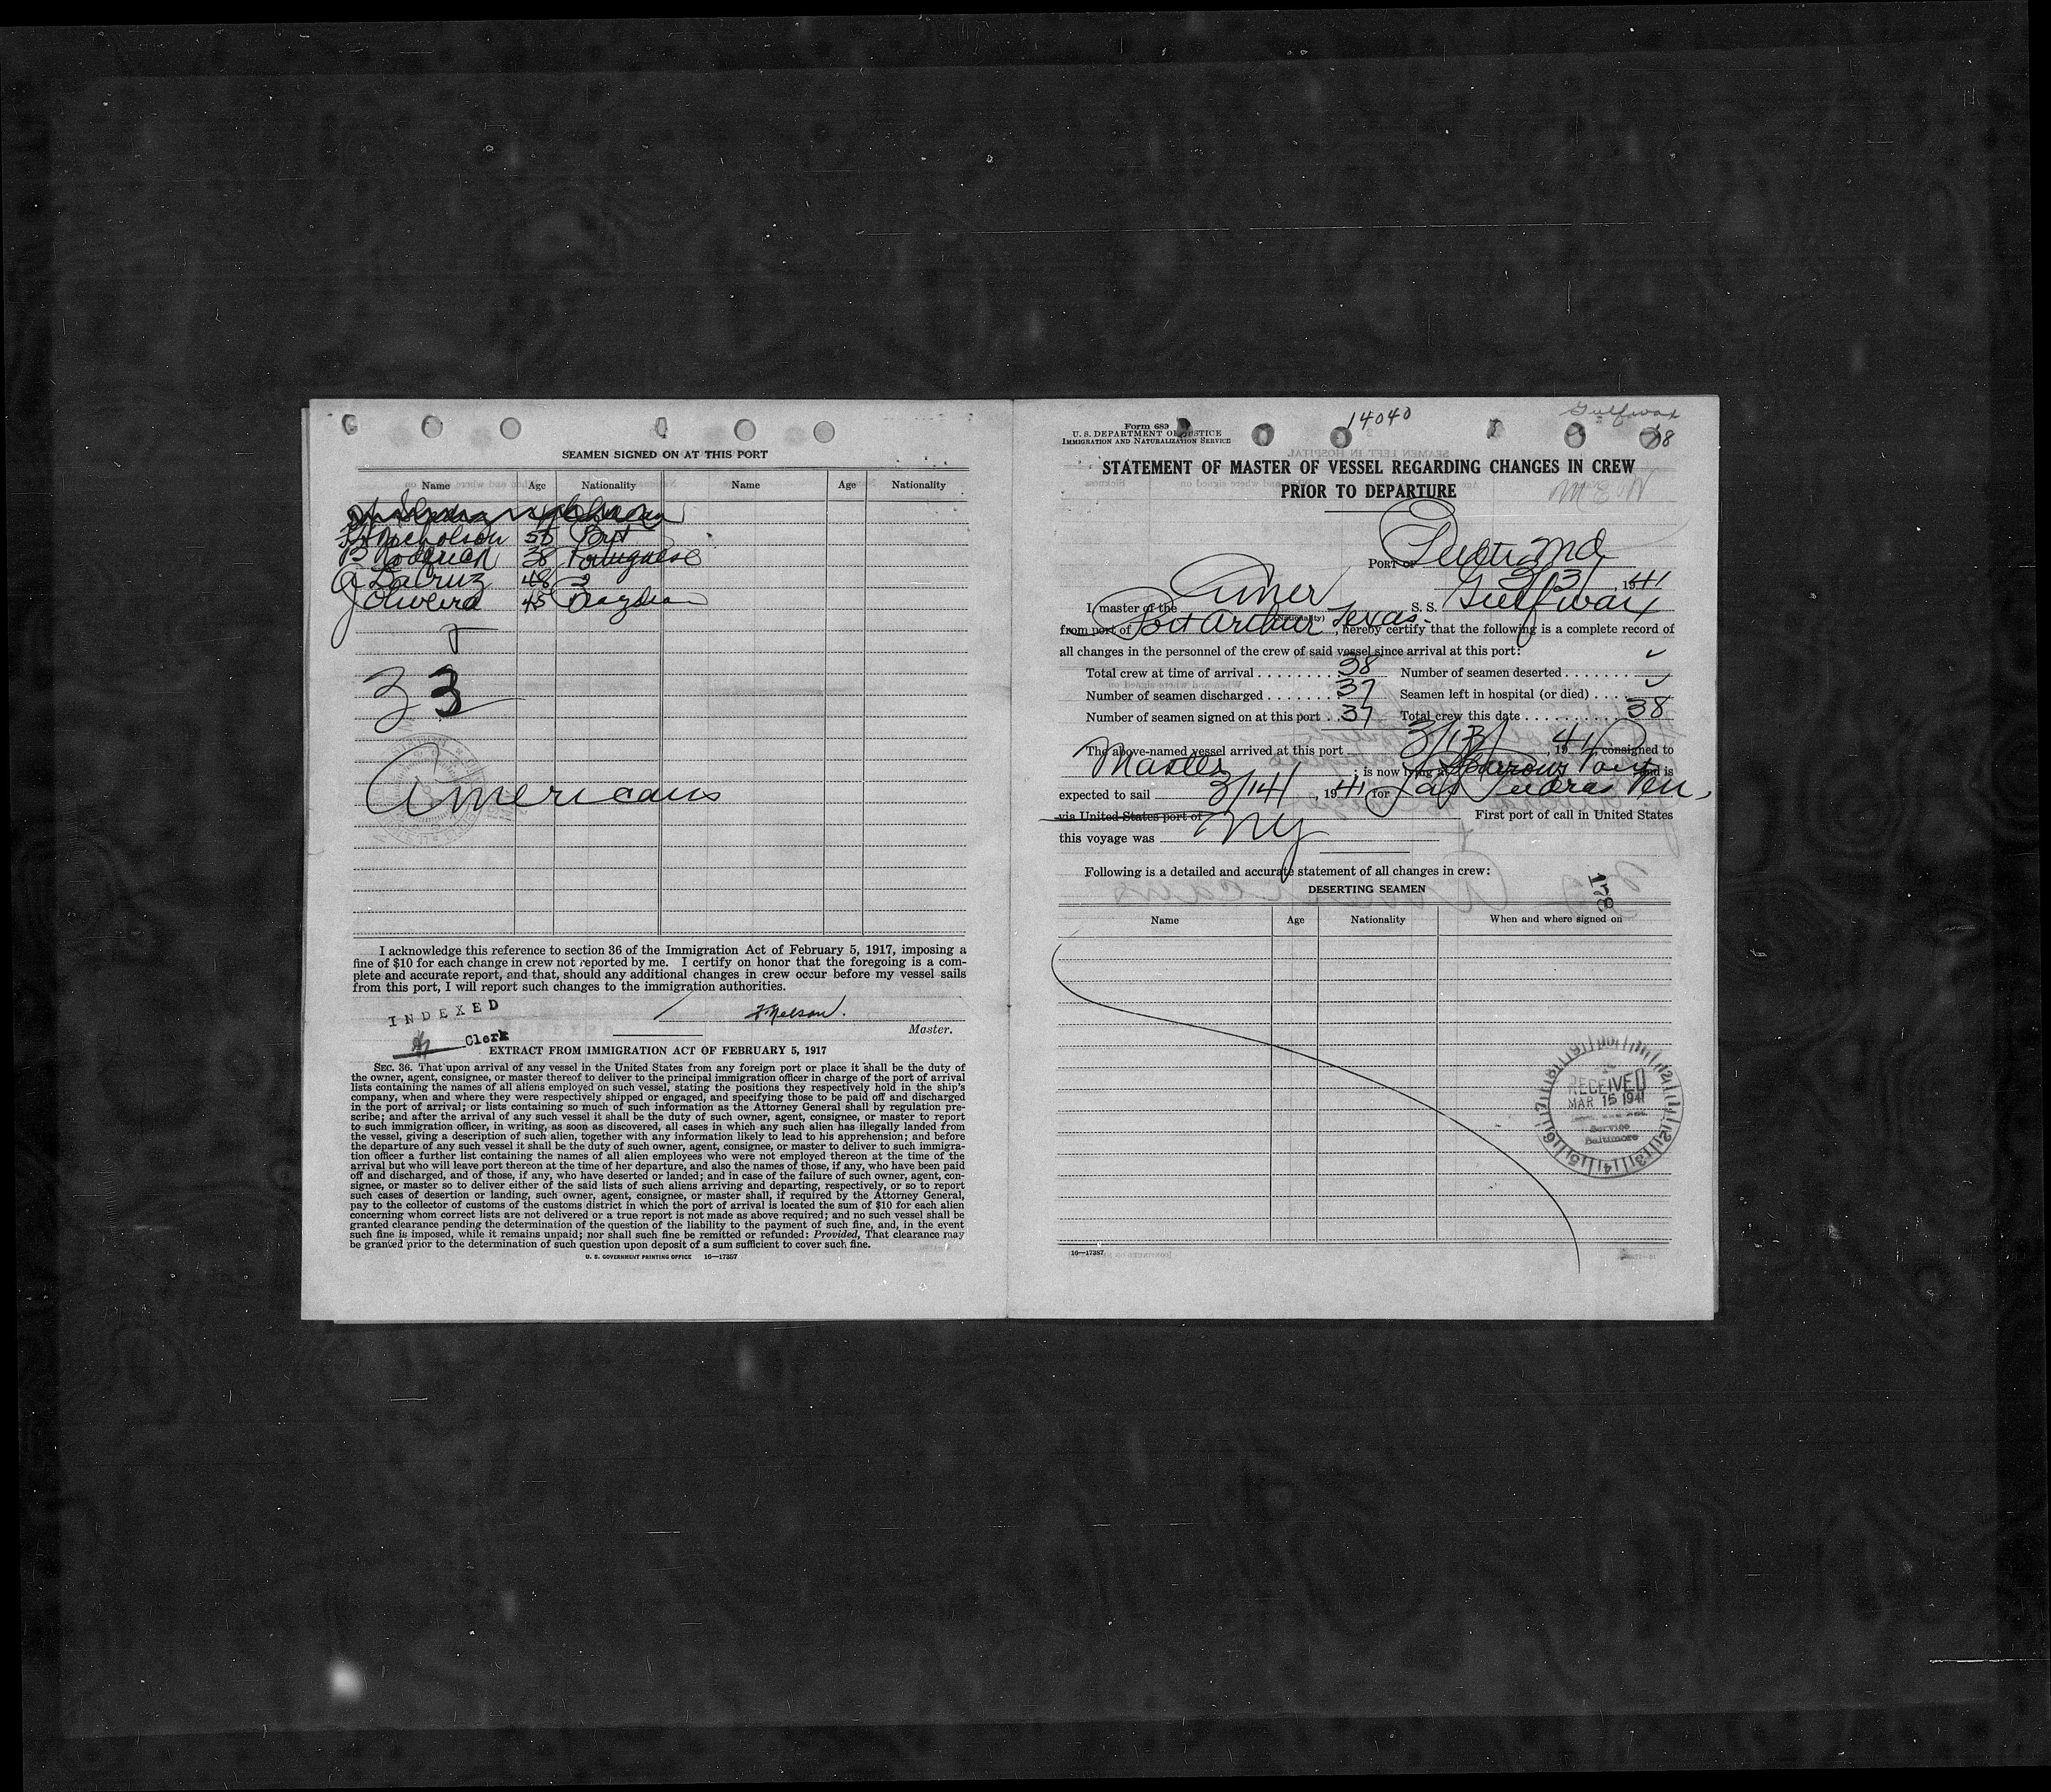 SEAMEN SIGNED ON AT THIS PORT
Name Age Nationality Name Age Nationality
Nicholson 55 Brit
38 Portuguese
A Dacruz 48
J Oliveira 45
33
Americans
I acknowledge this reference to section 36 of the Immigration Act of February 5, 1917, imposing a
fine of $10 for each change in crew not reported by me. I certify on honor that the foregoing is a com-
plete and accurate report, and that, should any additional changes in crew occur before my vessel sails
from this port, I will report such changes to the immigration authorities.
INDEXED
Clerk
F. Nelson.
Master.
EXTRACT FROM IMMIGRATION ACT OF FEBRUARY 5, 1917
SEC. 36. That upon arrival of any vessel in the United States from any foreign port or place it shall be the duty of
the owner, agent, consignee, or master thereof to deliver to the principal immigration officer in charge of the port of arrival
lists containing the names of all aliens employed on such vessel, stating the positions they respectively hold in the ship's
company, when and where they were respectively shipped or engaged, and specifying those to be paid off and discharged
in the port of arrival; or lists containing so much of such information as the Attorney General shall by regulation pre-
scribe; and after the arrival of any such vessel it shall be the duty of such owner, agent, consignee, or master to report
to such immigration officer, in writing, as soon as discovered, all cases in which any such alien has illegally landed from
the vessel, giving a description of such alien, together with any information likely to lead to his apprehension; and before
the departure of any such vessel it shall be the duty of such owner, agent, consignee, or master to deliver to such immigra-
tion officer a further list containing the names of all alien employees who were not employed thereon at the time of the
arrival but who will leave port thereon at the time of her departure, and also the names of those, if any, who have been paid
off and discharged, and of those, if any, who have deserted or landed; and in case of the failure of such owner, agent, con-
signee, or master so to deliver either of the said lists of such aliens arriving and departing, respectively, or so to report
such cases of desertion or landing, such owner, agent, consignee, or master shall, if required by the Attorney General,
pay to the collector of customs of the customs district in which the port of arrival is located the sum of $10 for each alien
concerning whom correct lists are not delivered or a true report is not made as above required; and no such vessel shall be
granted clearance pending the determination of the question of the liability to the payment of such fine, and, in the event
such fine is imposed, while it remains unpaid; nor shall such fine be remitted or refunded: Provided, That clearance may
be granted prior to the determination of such question upon deposit of a sum sufficient to cover such fine.
U. S. GOVERNMENT PRINTING OFFICE 16—17387
14040
Gulfwax
Form 689
U. S. DEPARTMENT OF JUSTICE
IMMIGRATION AND NATURALIZATION SERVICE
STATEMENT OF MASTER OF VESSEL REGARDING CHANGES IN CREW
PRIOR TO DEPARTURE
PORT OF Md
3/13/, 1941
I, master of the Amer S. S. Gulfwax
from port of Port Arthur Texas, hereby certify that the following is a complete record of
all changes in the personnel of the crew of said vessel since arrival at this port:
Total crew at time of arrival 38 Number of seamen deserted ✓
Number of seamen discharged 37 Seamen left in hospital (or died) ✓
Number of seamen signed on at this port 37 Total crew this date 38
The above-named vessel arrived at this port 3/13/, 1941, consigned to
Master, is now lying at Sparrows Point and is
expected to sail 3/14/, 1941, for Las Piedras Ven,
via United States port of First port of call in United States
this voyage was NY
Following is a detailed and accurate statement of all changes in crew:
178
DESERTING SEAMEN
Name Age Nationality When and where signed on
RECEIVED
MAR 15 1941
Service
Baltimore
16—17387